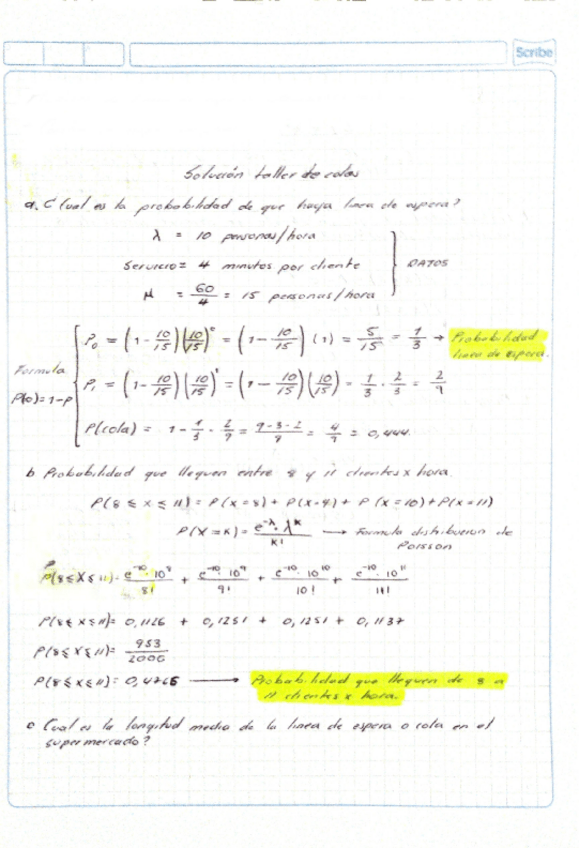 Scribe
Solución taller de colas
a. ¿Cual es la probabilidad de que haya linea de espera?
λ = 10 personas/hora
Servicio = 4 minutos por cliente
DATOS
M = 60/4 = 15 personas/hora
P₀ = (1 - 10/15)(10/15)⁰ = (1 - 10/15)(1) = 5/15 = 1/3 → Probabilidad linea de espera.
Formula
P(0) = 1-P
P₁ = (1 - 10/15)(10/15)¹ = (1 - 10/15)(10/15) = 1/3 · 2/3 = 2/9
P(cola) = 1 - 1/3 - 2/9 = 9-3-2/9 = 4/9 = 0,444.
b Probabilidad que lleguen entre 8 y 11 clientes x hora.
P(8 ≤ x ≤ 11) = P(x = 8) + P(x = 9) + P(x = 10) + P(x = 11)
P(X = K) = e^-λ · λ^K / K! → Formula distribucion de Poisson
P(8 ≤ X ≤ 11) = e^-10 · 10^8 / 8! + e^-10 · 10^9 / 9! + e^-10 · 10^10 / 10! + e^-10 · 10^11 / 11!
P(8 ≤ X ≤ 11) = 0,1126 + 0,1251 + 0,1251 + 0,1137
P(8 ≤ X ≤ 11) = 953/2000
P(8 ≤ X ≤ 11) = 0,4765 → Probabilidad que lleguen de 8 a
11 clientes x hora.
c Cual es la longitud media de la linea de espera o cola en el
supermercado?